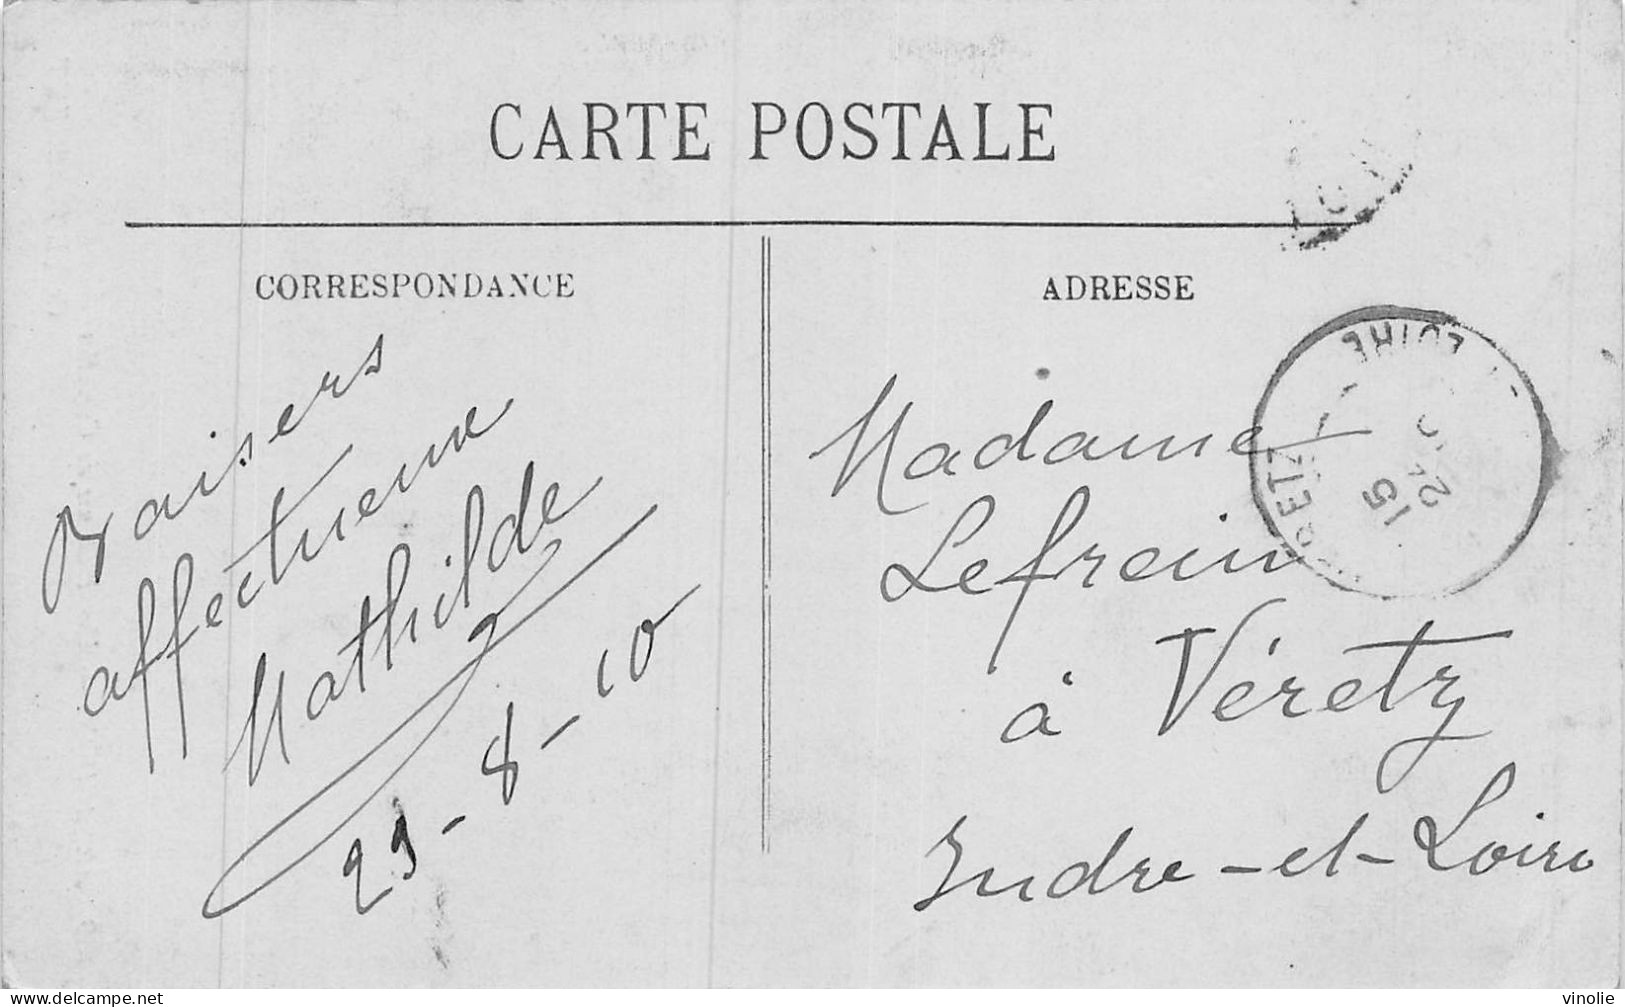 CARTE POSTALE
CORRESPONDANCE
Baisers
affectueux
Mathilde
29-8-10
ADRESSE
Madame
Lefrein
à Véretz
Indre-et-Loire
LOIRE
RETZ
15
delcampe.net
vinolie